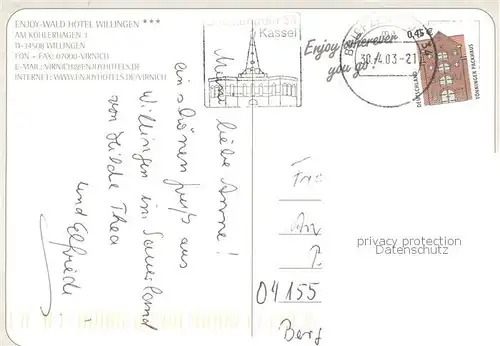 ENJOY-WALD HOTEL WILLINGEN ***
AM KÖHLERHAGEN 3
D-34508 WILLINGEN
FON + FAX: 07000-VIRNICH
E-MAIL: VIRNICH@ENJOYHOTELS.DE
INTERNET: WWW.ENJOYHOTELS.DE/VIRNICH
Kassel
Enjoy wherever
you go!
30.4.03-21
0,45 €
DEUTSCHLAND
TÖNNINGER PACKHAUS
Meine liebe Anne!
Ein schönen Gruß aus
Willingen im Sauerland
von Hilde Thea
und Elfriede
privacy protection
Datenschutz
04155
Berg